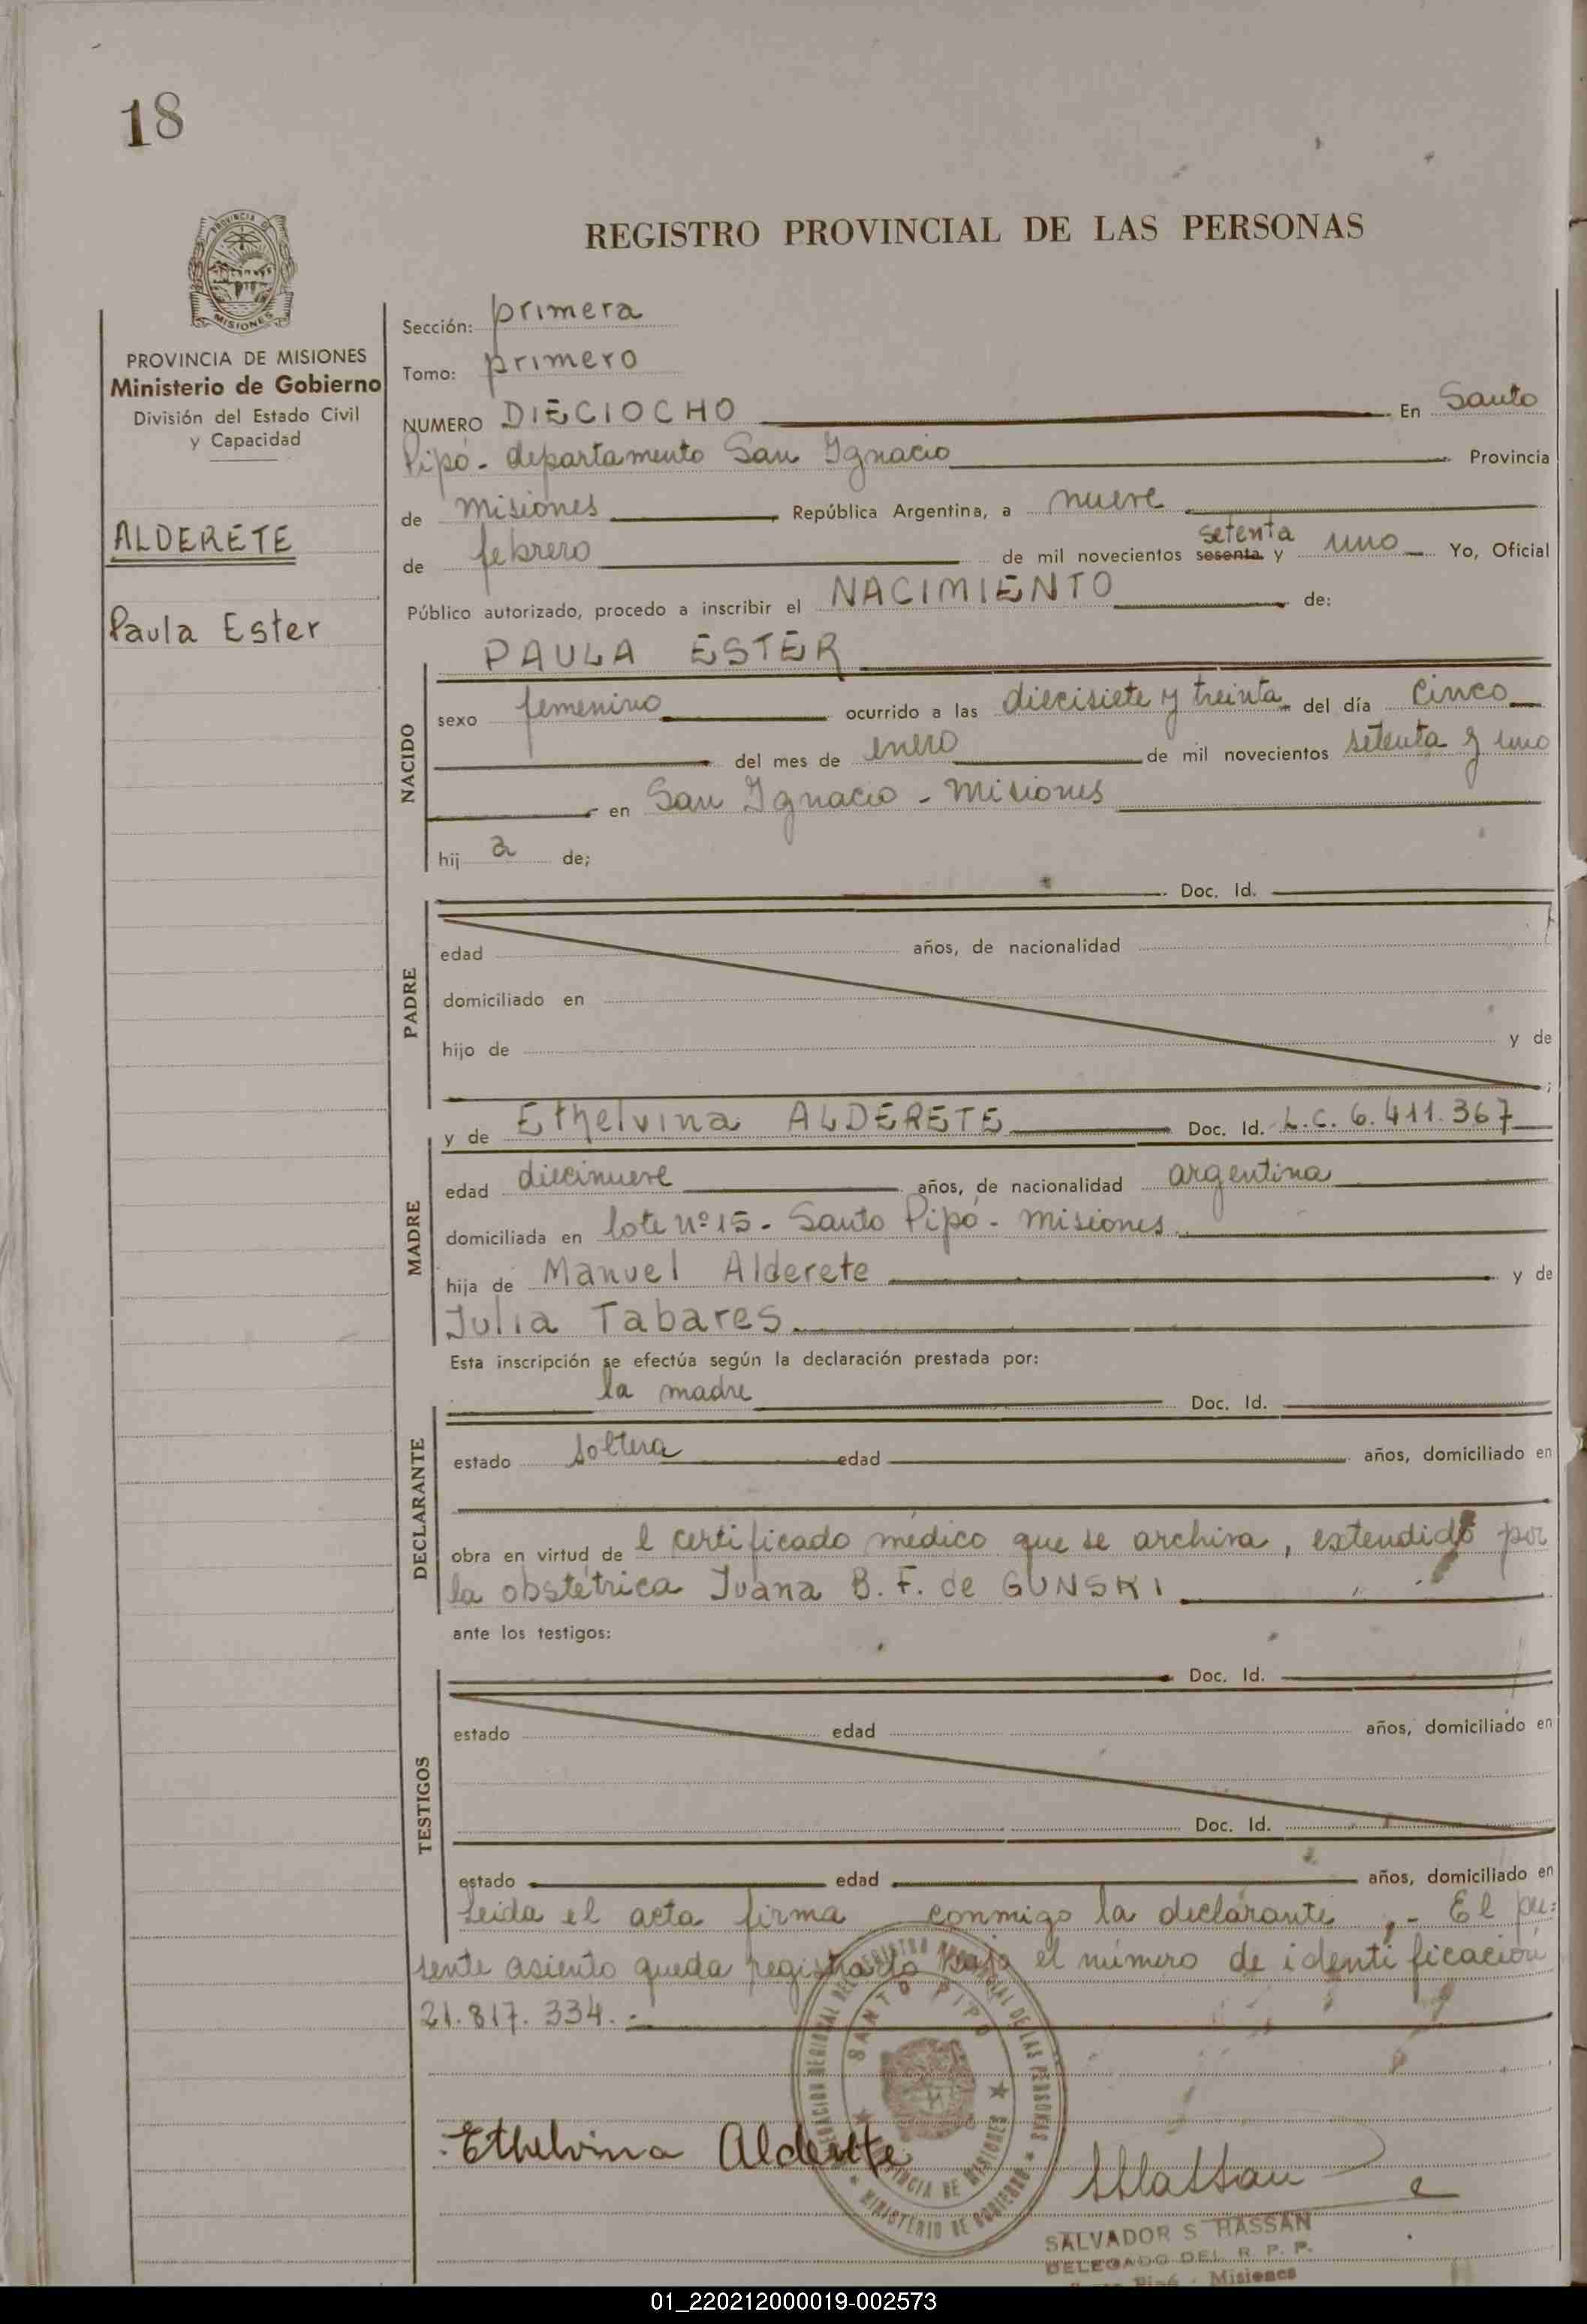 18
PROVINCIA
MISIONES
PROVINCIA DE MISIONES
Ministerio de Gobierno
División del Estado Civil
y Capacidad
ALDERETE
Paula Ester
REGISTRO PROVINCIAL DE LAS PERSONAS
Sección: primera
Tomo: primero
NUMERO DIECIOCHO En Santo
Pipó - departamento San Ignacio Provincia
de Misiones República Argentina, a nueve
setenta
de febrero de mil novecientos sesenta y uno Yo, Oficial
Público autorizado, procedo a inscribir el NACIMIENTO de:
PAULA ESTER
NACIDO
sexo femenino ocurrido a las diecisiete y treinta del día cinco
del mes de enero de mil novecientos setenta y uno
en San Ignacio - Misiones
hij a de;
PADRE
Doc. Id.
edad años, de nacionalidad
domiciliado en
hijo de y de
;
MADRE
y de Ethelvina ALDERETE Doc. Id. L.C. 6.411.367
edad diecinueve años, de nacionalidad argentina
domiciliada en lote nº 15 - Santo Pipó - Misiones
hija de Manuel Alderete y de
Julia Tabares
Esta inscripción se efectúa según la declaración prestada por:
DECLARANTE
la madre Doc. Id.
estado soltera edad años, domiciliado en
obra en virtud de l certificado médico que se archiva, extendido por
la obstétrica Juana B. F. de GUNSKI
ante los testigos:
TESTIGOS
Doc. Id.
estado edad años, domiciliado en
Doc. Id.
estado edad años, domiciliado en
Leida el acta firma conmigo la declarante.- El pre-
sente asiento queda registrado bajo el número de identificación
21.817.334.-
SANTO PIPO
PROVINCIA DE MISIONES
MINISTERIO DE GOBIERNO
Ethelvina Alderete
SALVADOR S HASSAN
DELEGADO DEL R. P. P.
Santo Pipó - Misiones
01_220212000019-002573